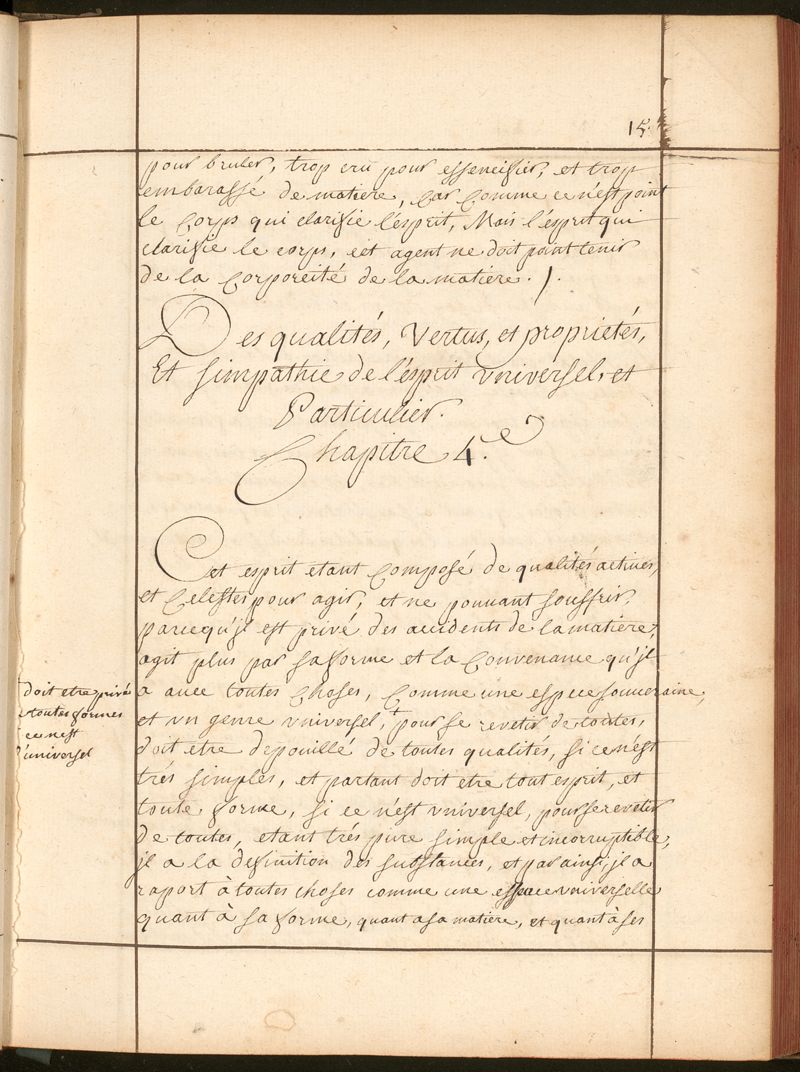 15.
pour bruler, trop cru pour essencifier, et trop
embarassé de matiere, Car Comme ce n'est point
le Corps qui clarifie l'esprit, Mais l'esprit qui
clarifie le corps, cet agent ne doit point tenir
de la Corporeité de la matiere. /.
Des qualités, Vertus, et proprietés,
Et simpathie de l'esprit vniversel, et
Particulier.
Chapitre 4.e
Cet esprit etant Composé de qualités actives,
et Celestes pour agir, et ne pouvant souffrir,
parcequ'jl est privé des accidents de la matiere,
agit plus par sa forme et la Convenance qu'jl
a avec toutes Choses, Comme une espece souveraine,
et vn genre vniversel, + pour se revetir de toutes,
doit etre depouillé de toutes qualités, si ce n'est
trés simples, et partant doit etre tout esprit, et
toute forme, si ce n'est vniversel, pour se revetir
de toutes, etant trés pure simple et incorruptible,
jl a la definition des substances, et par ainsi, jl a
raport à toutes choses comme une espece vniverselle
quant à sa forme, quant a sa matiere, et quant à ses
doit etre privé
toutes formes
ce n'est
universel